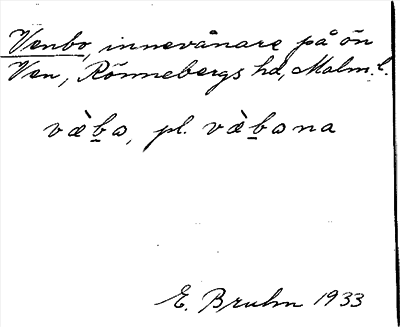 Venbo, innevånare på ön
Ven, Rönnebergs hd, Malm. l.
væ̀b̲ɔ, pl. væ̀b̲ɔna
E. Bruhn 1933